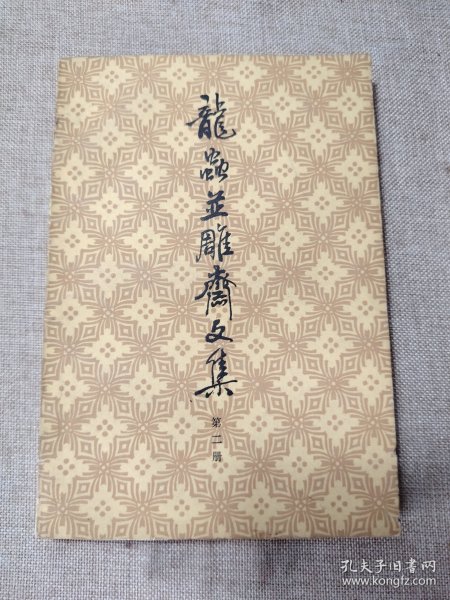 龍蟲並雕齋文集
第二册
孔夫子旧书网
www.kongfz.com